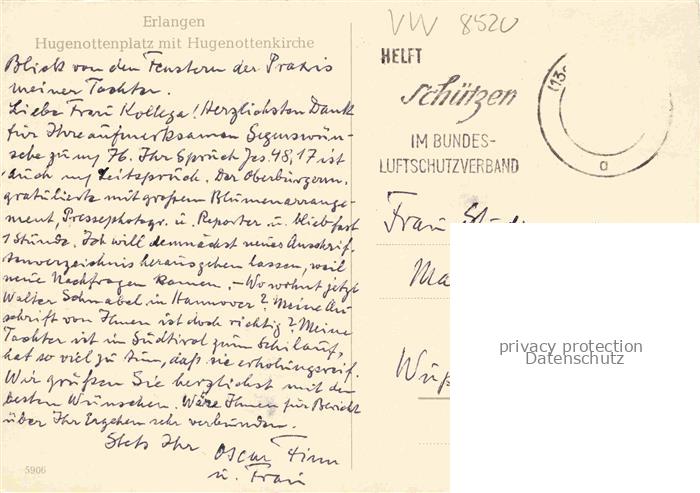 Erlangen
Hugenottenplatz mit Hugenottenkirche
Blick von den Fenstern der Praxis
meiner Tochter.
Liebe Frau Kollega! Herzlichsten Dank
für Ihre aufmerksamen Segenswün-
sche zu mr 76. Ihr Spruch Jes. 48,17 ist
auch mr Leitspruch. Der Oberbürgerm.
gratulierte mit großem Blumenarrange-
ment, Pressephotogr. u. Reporter u. blieb fast
1 Stunde. Ich will demnächst neues Anschrif-
tenverzeichnis herausgehen lassen, weil
neue Nachfragen kamen. - Wo wohnt jetzt
Walter Schnabel in Hannover? Meine An-
schrift von Ihnen ist doch richtig? Meine
Tochter ist in Südtirol zum Schilauf,
hat so viel zu tun, daß sie erholungsreif.
Wir grüßen Sie herzlichst mit den
besten Wünschen. Wäre Ihnen für Bericht
über Ihr Ergehen sehr verbunden.
Stets Ihr
Oscar Finn
u. Frau
5906
VW 8520
HELFT
schützen
IM BUNDES-
LUFTSCHUTZVERBAND
(13a
a
Frau
Ma
privacy protection
Datenschutz